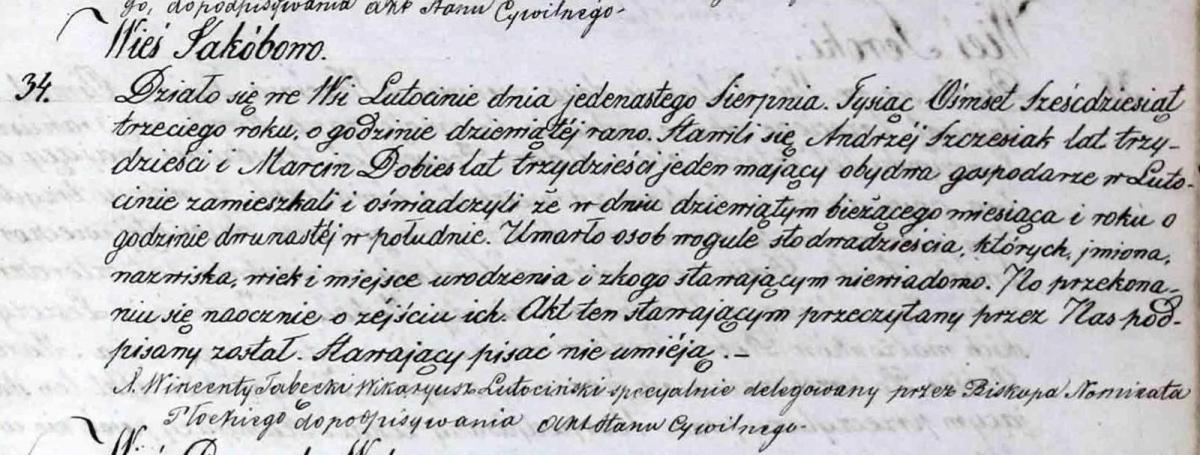 go, do podpisywania akt Stanu Cywilnego.
Wieś Jakóbowo.
34. Działo się we Wsi Lutocinie dnia jedenastego Sierpnia. Tysiąc Ośmset Sześćdziesiąt
trzeciego roku, o godzinie dziewiątéj rano. Stawili się Andrzéj Szczesiak lat trzy-
dzieści i Marcin Dobies lat trzydzieści jeden mający obydwa gospodarze w Luto-
cinie zamieszkali i oświadczyli że w dniu dziewiątym bieżącego miesiąca i roku o
godzinie dwunastéj w południe. Umarło osob wogule sto dwadzieścia, których, jmiona,
nazwiska, wiek i miejsce urodzenia i zkogo stawającym niewiadomo. Po przekona-
niu się naocznie o zéjściu ich. Akt ten stawającym przeczytany przez Nas pod-
pisany został. Stawający pisać nie uméją. –
X. Wincenty Wikaryusz Lutociński specyalnie delegowany przez Biskupa Nominata
Płockiego do podpisywania akt Stanu Cywilnego.
Wieś